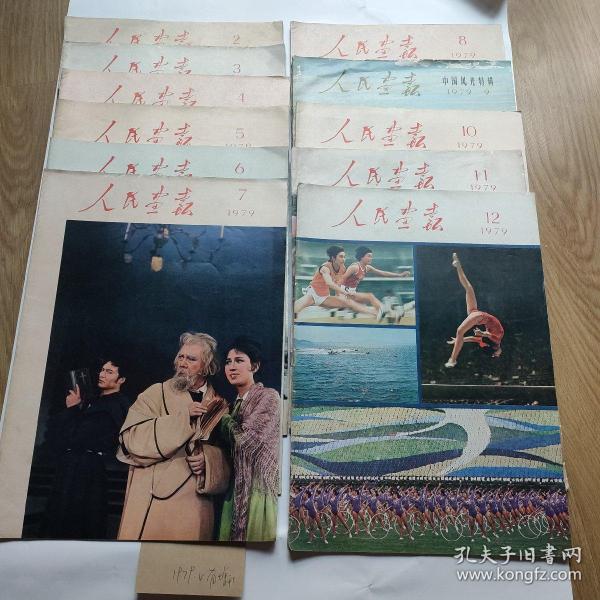 人民画报 2
人民画报 3
人民画报 4
人民画报 5
1979
人民画报 6
人民画报 7
1979
人民画报 8
1979
人民画报 中国风光特辑
1979 9
人民画报 10
1979
人民画报 11
1979
人民画报 12
1979
1979.
孔夫子旧书网
www.kongfz.com